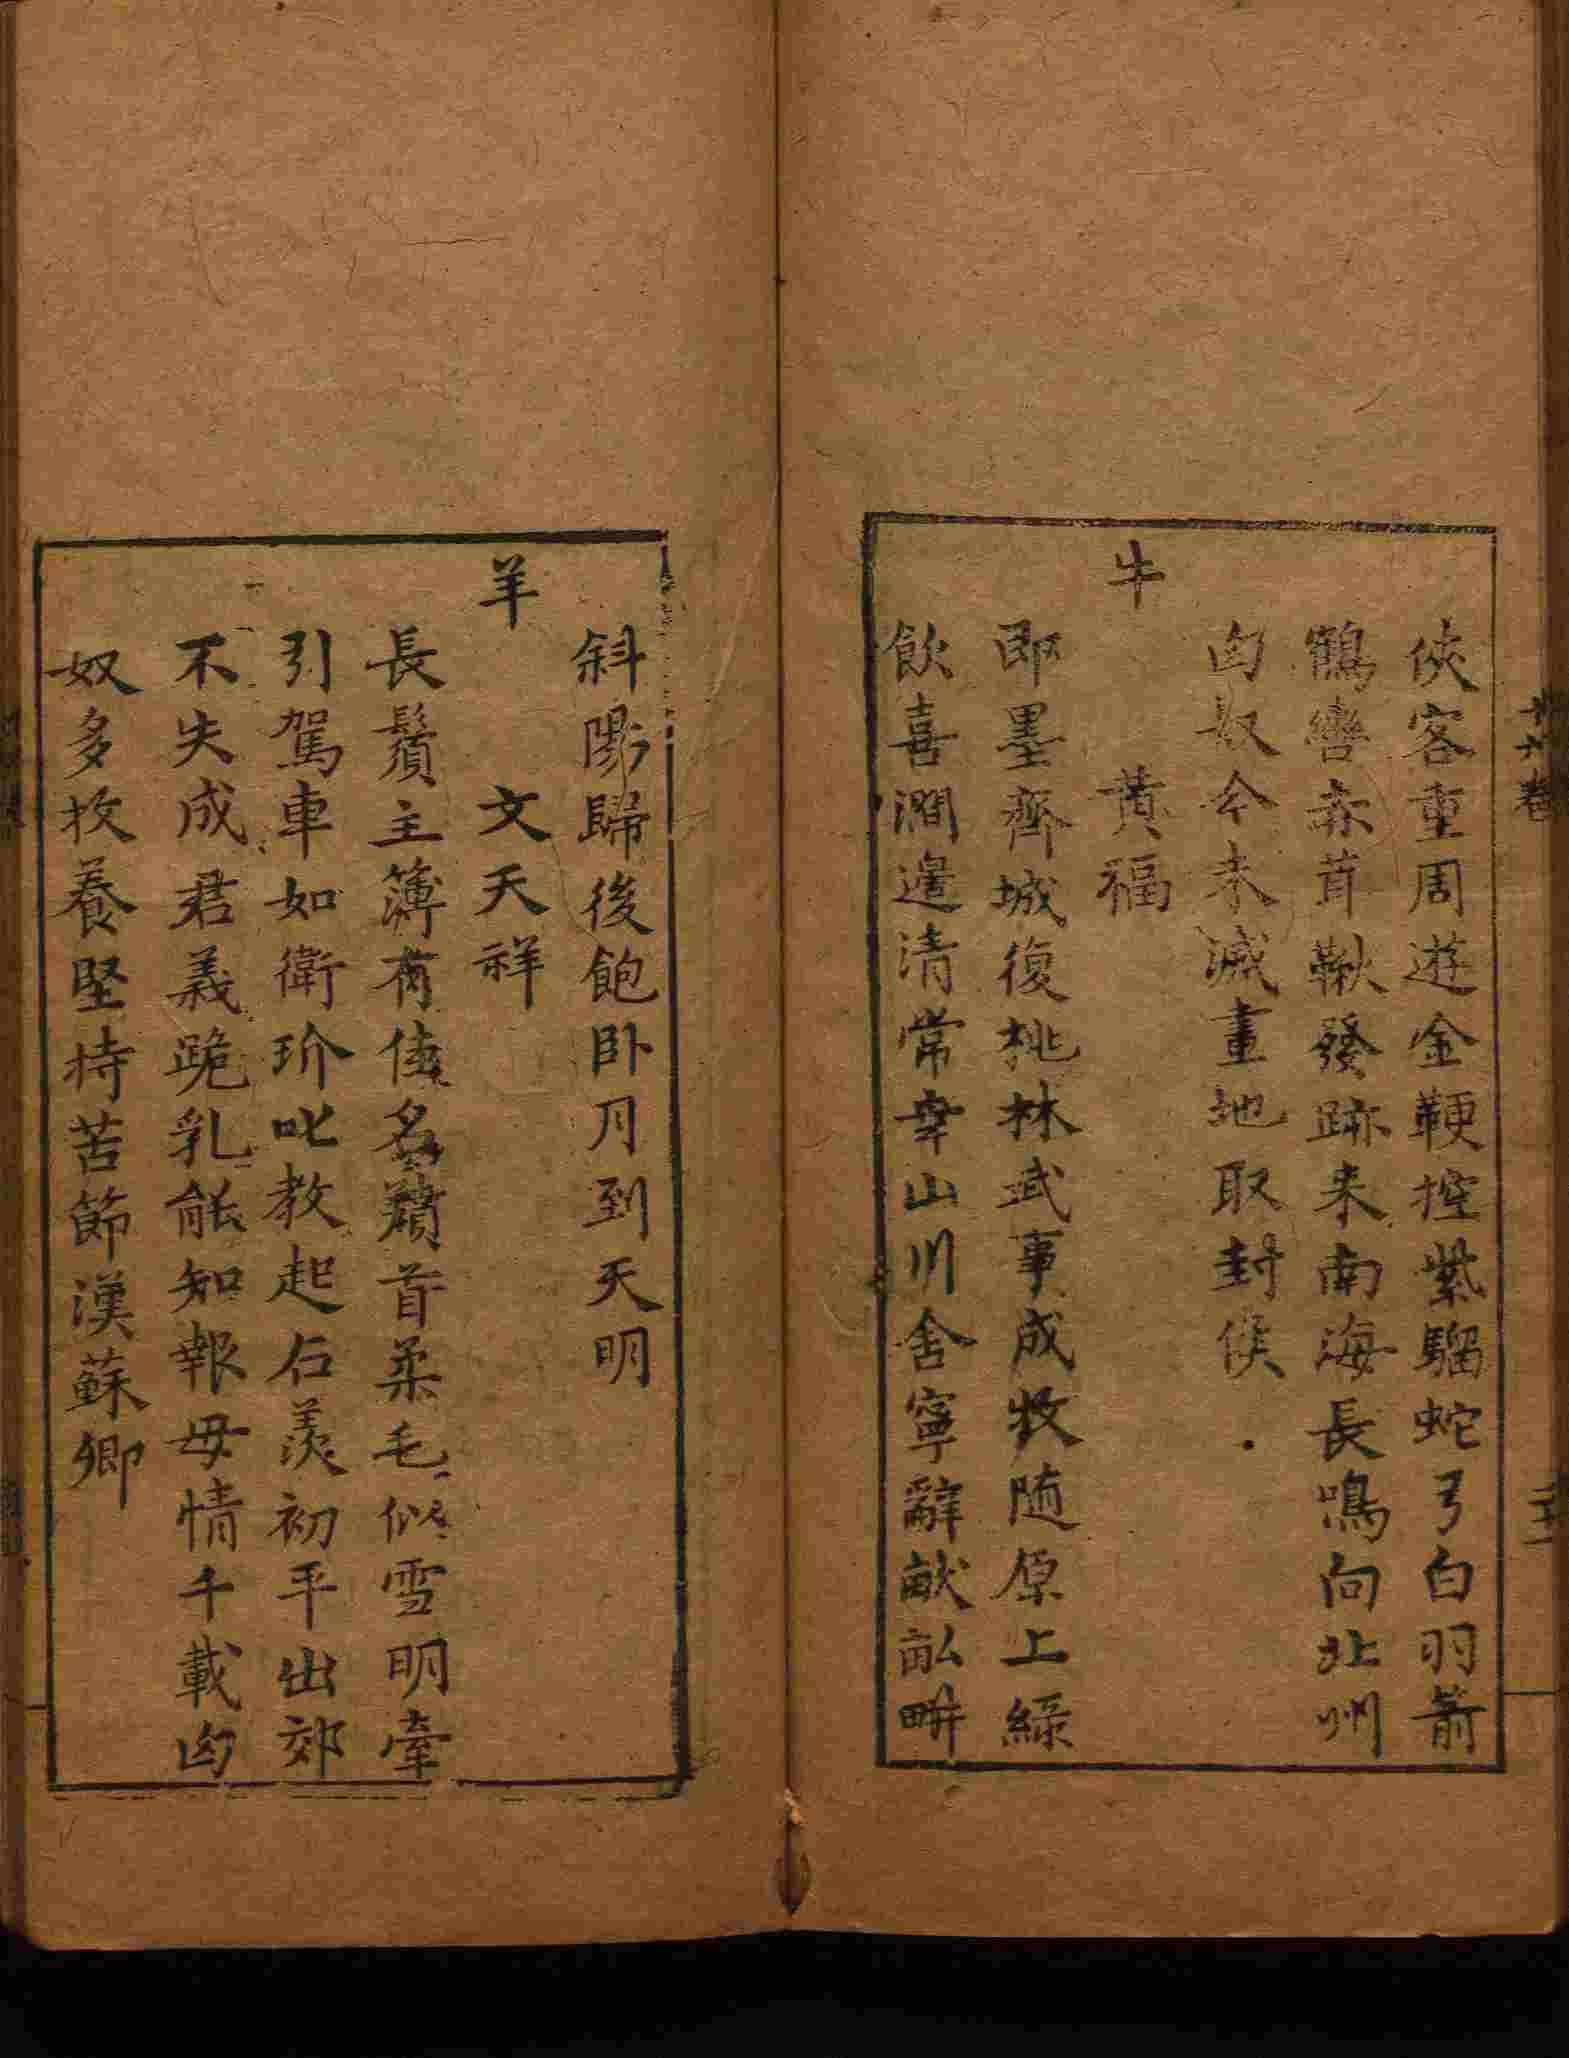 俠客重周遊金鞭控紫騮蛇弓白羽箭
鶴轡赤茸鞦發跡来南海長鳴向北州
匈奴今未滅畫地取封侯
牛
黄福
即墨齊城復桃林武事成牧随原上緑
飲喜澗邊清常幸山川舍寧辭畎畝畊
斜陽歸後飽卧月到天明
羊
文天祥
長鬚主簿有佳名 首柔毛似雪明牽
引駕車如衛玠叱教起石羨初平出郊
不失成君義跪乳能知報母情千載匈
奴多牧養堅持苦節漢蘇卿
十六卷